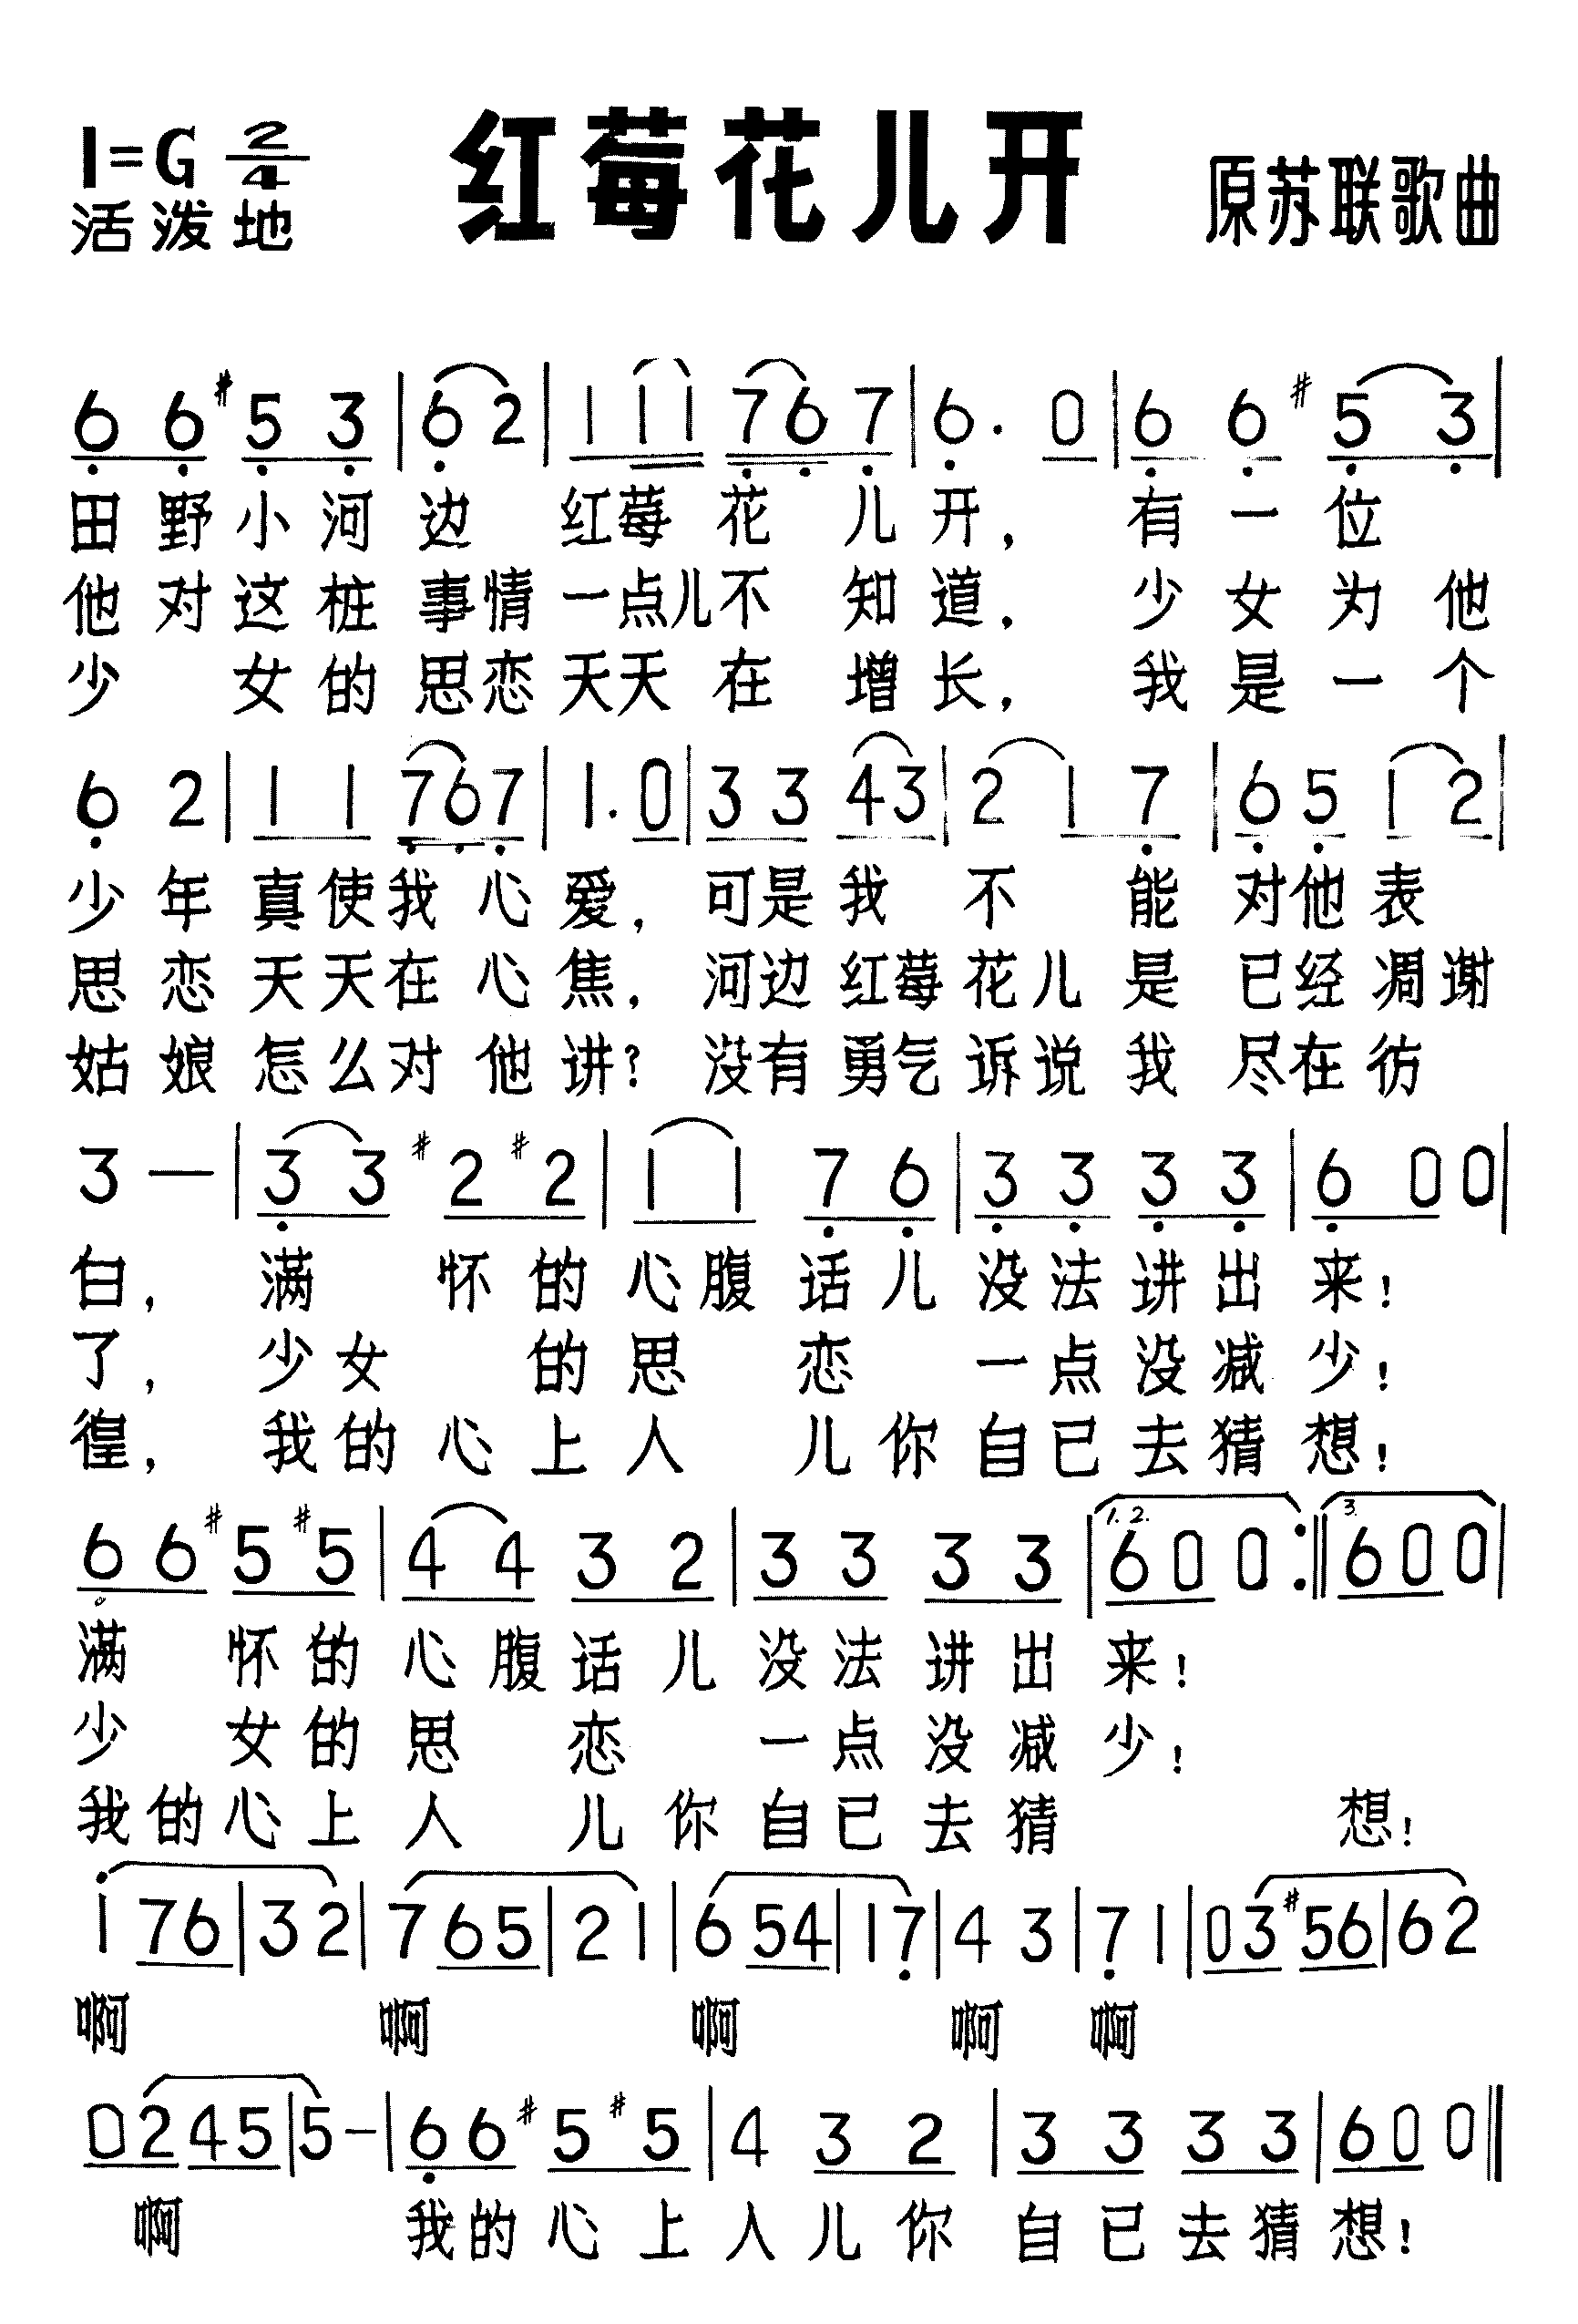 红莓花儿开
1=G 2/4
活泼地
原苏联歌曲
6 6 #5 3 | 6 2 | 1 1 1 7 6 7 | 6 · 0 | 6 6 #5 3 |
田野小河边 红莓花儿开， 有一位
他对这桩事情一点儿不知道， 少女为他
少女的思恋天天在增长， 我是一个
6 2 | 1 1 7 6 7 | 1 · 0 | 3 3 4 3 | 2 1 7 | 6 5 1 2 |
少年真使我心爱， 可是我不能对他表
思恋天天在心焦， 河边红莓花儿是已经凋谢
姑娘怎么对他讲？ 没有勇气诉说我尽在彷
3 — | 3 3 #2 #2 | 1 1 7 6 | 3 3 3 3 | 6 0 0 |
白， 满怀的心腹话儿没法讲出来！
了， 少女的思恋一点没减少！
徨， 我的心上人儿你自己去猜想！
6 6 #5 #5 | 4 4 3 2 | 3 3 3 3 | 1.2. 6 0 0 :‖ 3. 6 0 0 |
满怀的心腹话儿没法讲出来！
少女的思恋一点没减少！
我的心上人儿你自己去猜 想！
1 7 6 | 3 2 | 7 6 5 | 2 1 | 6 5 4 | 1 7 | 4 3 | 7 1 | 0 3 #5 6 | 6 2
啊 啊 啊 啊 啊
0 2 4 5 | 5 — | 6 6 #5 #5 | 4 3 2 | 3 3 3 3 | 6 0 0 ‖
啊 我的心上人儿你自己去猜想！